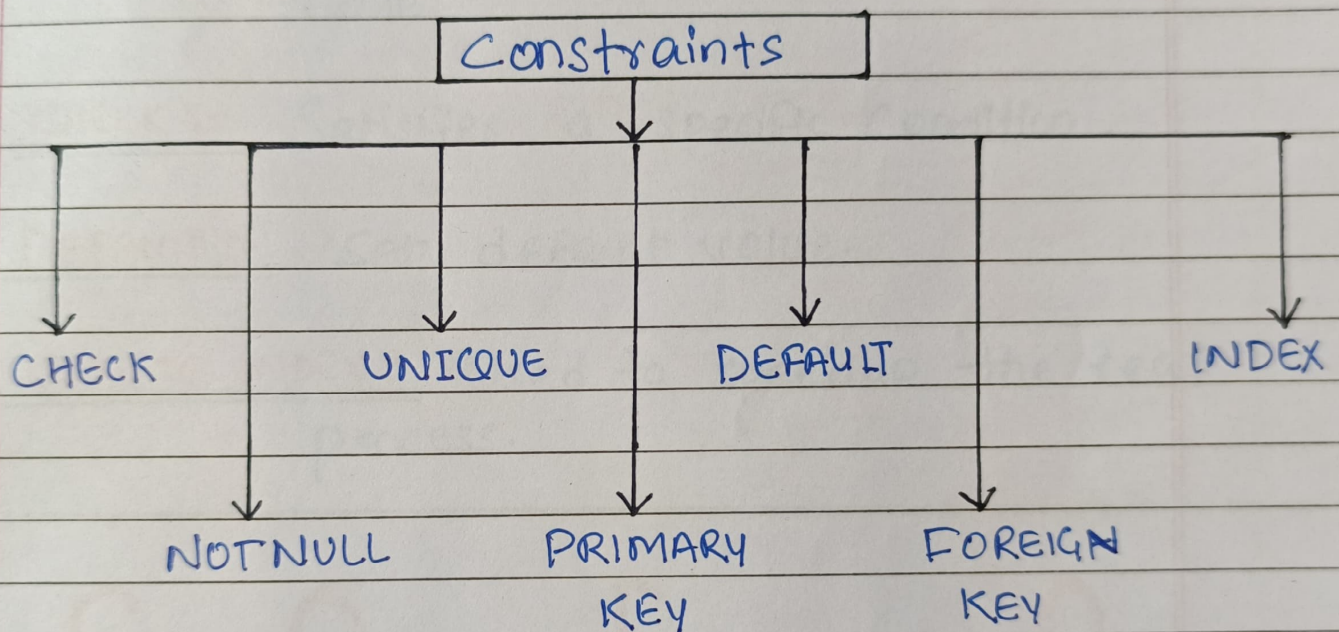 Constraints
CHECK
UNIQUE
DEFAULT
INDEX
NOTNULL
PRIMARY
KEY
FOREIGN
KEY